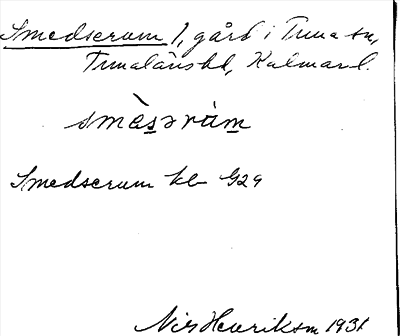 Smedserum 1, gård i Tuna sn,
Tunalänshd, Kalmar l.
smèsəràm
Smedserum kb G29
Nils Henriksson 1931